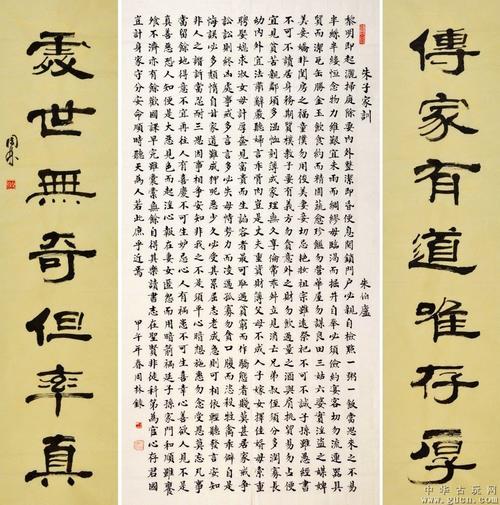 傳家有道唯存厚
朱子家訓 朱伯廬
黎明即起灑掃庭除要內外整潔即昏便息關鎖門戶必親自檢點一粥一飯當思來之不易
半絲半縷恒念物力維艱宜未雨而綢繆毋臨渴而掘井自奉必須儉約宴客切勿流連器具
質而潔瓦缶勝金玉飲食約而精園蔬愈珍饈勿營華屋勿謀良田三姑六婆實淫盜之媒婢
美妾嬌非閨房之福童僕勿用俊美妻妾切忌艷妝祖宗雖遠祭祀不可不誠子孫雖愚經書
不可不讀居身務期質樸教子要有義方勿貪意外之財勿飲過量之酒與肩挑貿易勿占便
宜見貧苦親鄰須多溫恤刻薄成家理無久享倫常乖舛立見消亡兄弟叔侄須分多潤寡長
幼內外宜法肅辭嚴聽婦言乖骨肉豈是丈夫重資財薄父母不成人子嫁女擇佳婿毋索重
聘娶媳求淑女毋計厚奩見富貴而生諂容者最可恥遇貧窮而作驕態者賤莫甚居家戒爭
訟訟則終凶處事戒多言言多必失毋恃勢力而凌逼孤寡勿貪口腹而恣殺牲禽乖僻自是
悔誤必多頹惰自甘家道難成狎昵惡少久必受其累屈志老成急則可相依輕聽發言安知
非人之譖訴當忍耐三思因事相爭安知非我之不是須平心暗想施惠勿念受恩莫忘凡事
當留餘地得意不宜再往人有喜慶不可生妒忌心人有禍患不可生喜幸心善欲人見不是
真善惡恐人知便是大惡見色而起淫心報在妻女匿怨而用暗箭禍延子孫家門和順雖饔
飧不濟亦有餘歡國課早完雖囊橐無餘自得其樂讀書志在聖賢非徒科第為官心存君國
宜計身家守分安命順時聽天為人若此庶乎近焉 甲午年春周林錄
處世無奇但率真
周林
中华古玩网
www.gucn.com